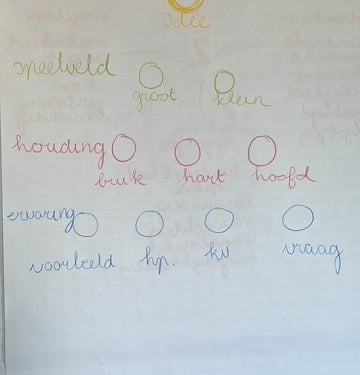 idee
speelveld
groot klein
houding
buik hart hoofd
ervaring
voorbeeld hp. kw vraag